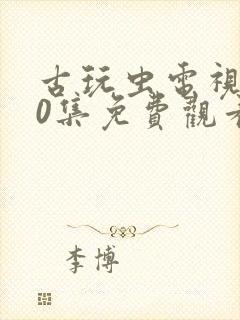 古玩虫電視
0集免費觀看
李博